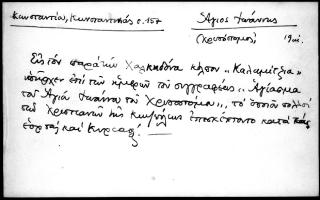 Κωνσταντίου, Κωνσταντινιάς σ. 157
Ἅγιος Ἰωάννης
(Χρυσόστομος) 19αι.
Εἰς τὸν παρὰ τὴν Χαλκηδόνα κῆπον „Καλαμίτζια„
ὑπῆρχεν ἐπὶ τῶν ἡμερῶν τοῦ συγγραφέως „Ἁγίασμα
τοῦ Ἁγίου Ἰωάννου τοῦ Χρυσοστόμου„, τὸ ὁποῖον πολλοὶ
τῶν Χριστιανῶν τῆς Κων/πόλεως ἐπεσκέπτοντο κατὰ τὰς
ἑορτὰς καὶ Κυριακάς.